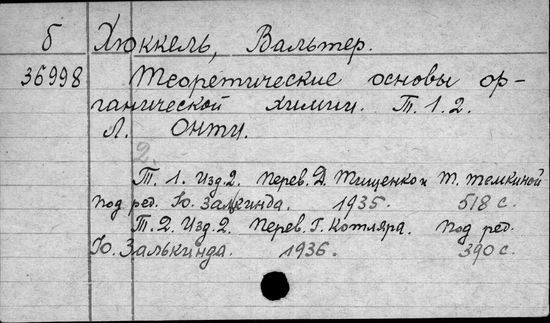 б Хюккель, Вальтер.
36998 Теоретические основы ор-
ганической химии. Т. 1. 2.
Л. ОНТИ.
2.
Т. 1. Изд. 2. Перев. Д. Тищенко и Т. Темкиной
под ред. Ю. Залкинда. 1935. 518 с.
Т. 2. Изд. 2. Перев. Г. Котляра. Под ред.
Ю. Залькинда. 1936. 390 с.